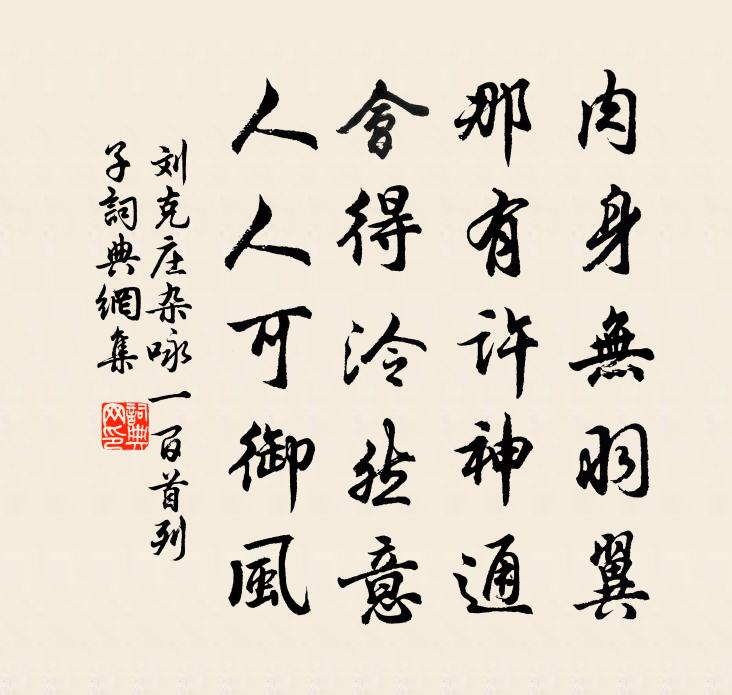 肉身無羽翼
那有許神通
會得泠然意
人人可御風
刘克庄杂咏一百首列
子詞典網集
詞典网印